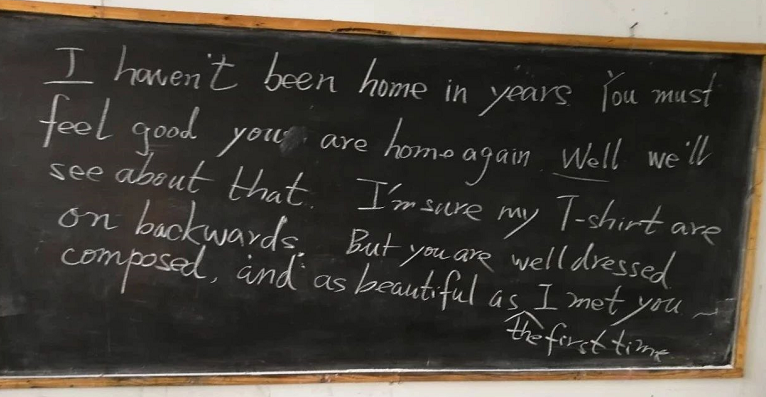 I haven't been home in years. You must
feel good you are home again. Well we'll
see about that. I'm sure my T-shirt are
on backwards. But you are well dressed
composed, and as beautiful as I met you
the first time